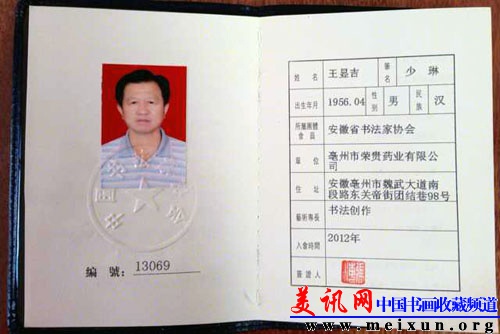 編 號: 13069
姓 名 王显吉 筆名 少 琳
出生年月 1956.04 性别 男 民族 汉
所屬團體會員 安徽省书法家协会
單 位 亳州市荣贵药业有限公司
住 址 安徽亳州市魏武大道南
段路东关帝街团结巷98号
藝術專長 书法创作
入會時間 2012年
簽證人
美讯网 中国书画收藏频道
www.meixun.org